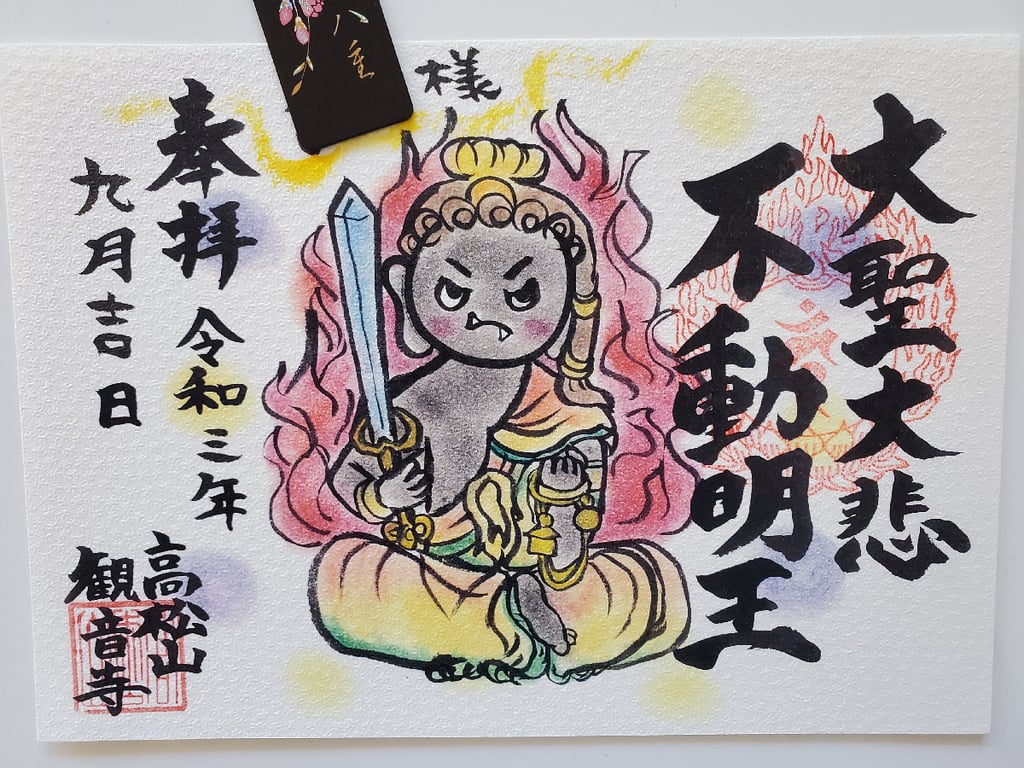 大聖大悲
不動明王
様
奉拝
令和三年
九月吉日
高松山
観音寺
八重